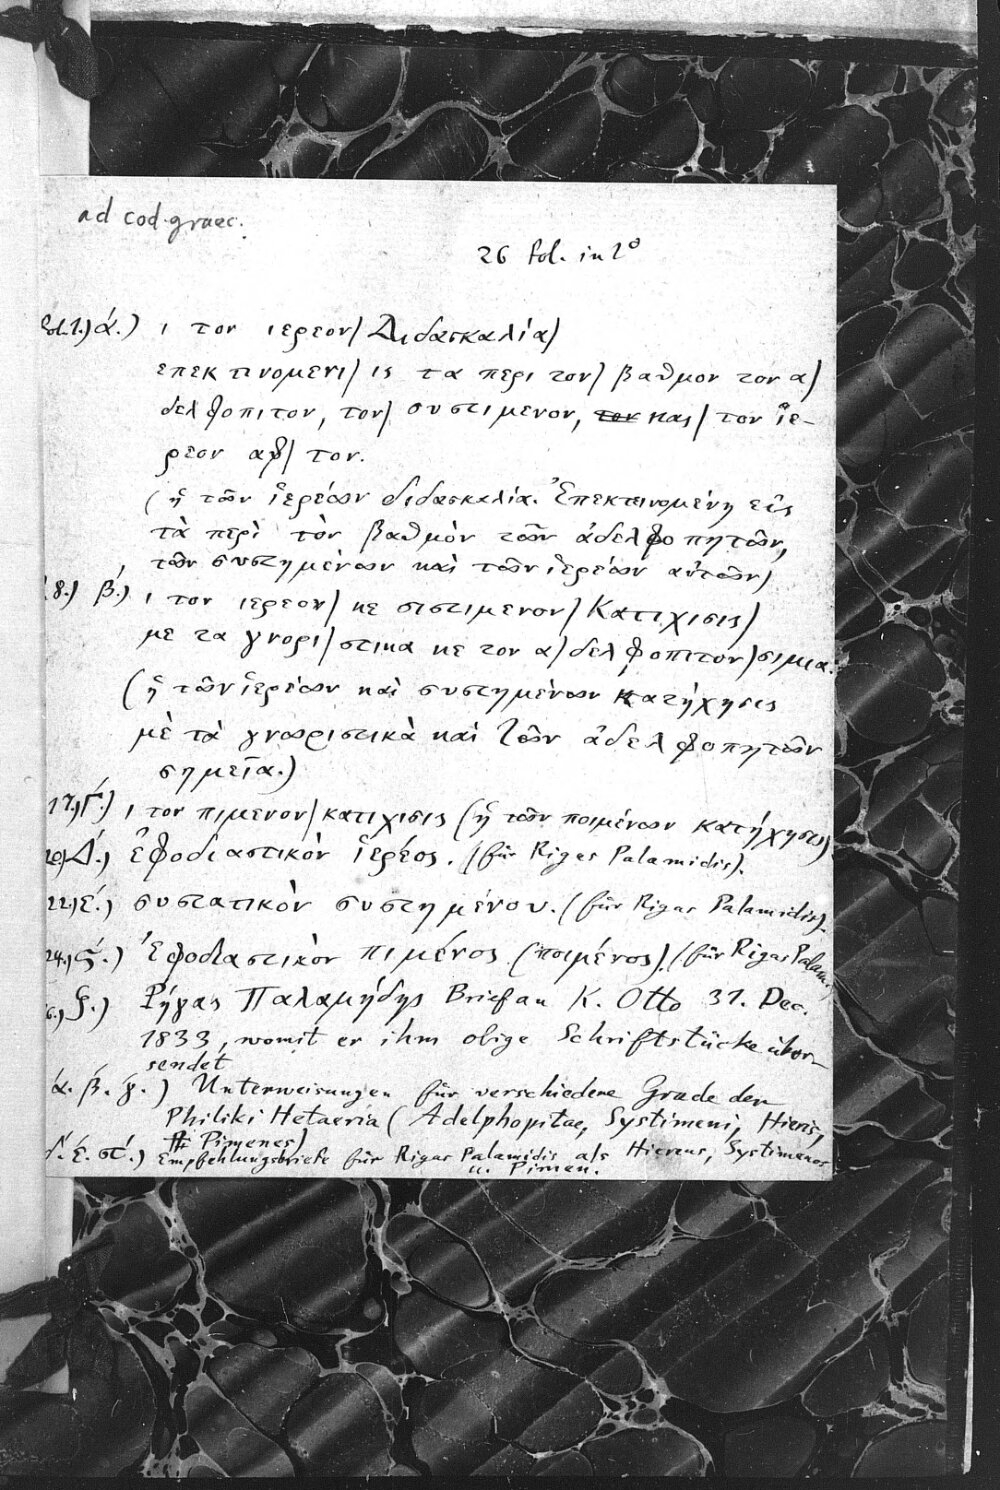 ad cod. graec.
26 fol. in 2°
fol. 1.) ά.) ι τον ιερεον/ Διδασκαλία/
επεκτινομενι/ ις τα περι τον/ βαθμον τον α/
δελφοπιτον, τον/ συστιμενον, τον και/ τον ἱε-
ρεον αφ/τον.
(ἡ τῶν ἱερέων διδασκαλία. Ἐπεκτεινομένη εἰς
τὰ περὶ τὸν βαθμὸν τῶν ἀδελφοπητῶν,
τῶν συστημένων καὶ τῶν ἱερέων αὐτῶν)
8.) β΄.) ι τον ιερεον/ κε σιστιμενον/ Κατιχισις/
με τα γνορι/στικα κε τον α/δελφοπιτον/σιμια.
(ἡ τῶν ἱερέων καὶ συστημένων κατήχησις
μὲ τὰ γνωριστικὰ καὶ τῶν ἀδελφοπητῶν
σημεῖα.)
17.) Γ΄.) ι τον πιμενον/κατιχισις (ἡ τῶν ποιμένων κατήχησις)
20.) Δ΄.) ἐφοδιαστικὸν ἱερέος. (für Rigas Palamidis).
22.) Ε΄.) συστατικὸν συστημένου. (für Rigas Palamidis).
24.) ς΄.) Ἐφοδιαστικὸν πιμένος (ποιμένος). (für Rigas Palam.)
ζ.) Ῥήγας Παλαμήδης Brief an K. Otto 31. Dec.
1833, womit er ihm obige Schriftstücke über-
sendet
ά. β΄. γ΄.) Unterweisungen für verschiedene Grade der
Philiki Hetaeria (Adelphopitae, Systimeni, Hieris,
Pimenes)
δ΄. έ. στ΄.) Empfehlungsbriefe für Rigas Palamidis als Hiereus, Systimenos
u. Pimen.